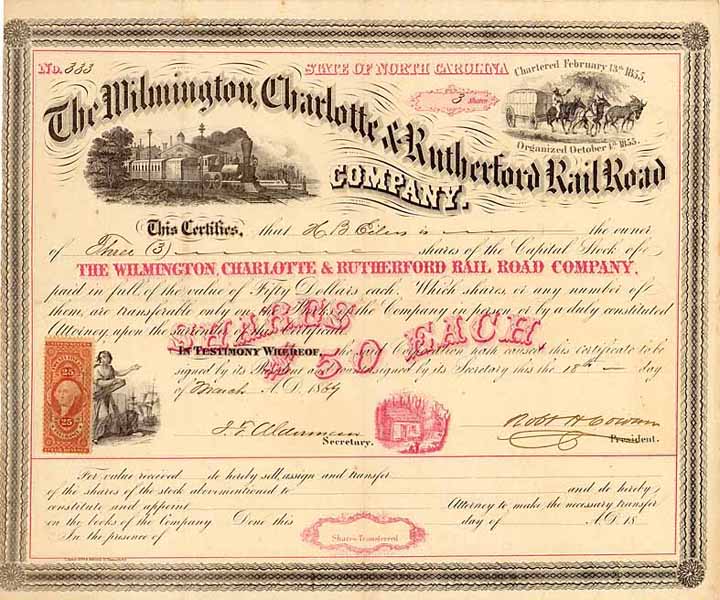 No. 333
STATE OF NORTH CAROLINA
Chartered February 13th 1855.
3 Shares
Organized October 4th 1855.
The Wilmington, Charlotte & Rutherford Rail Road
COMPANY.
This Certifies, that H B Eilers is the owner
of Three (3) shares of the Capital Stock of
THE WILMINGTON, CHARLOTTE & RUTHERFORD RAIL ROAD COMPANY,
paid in full of the value of Fifty Dollars each. Which shares or any number of
them, are transferable only on the Books of the Company in person or by a duly constituted
Attorney, upon the surrender of this Certificate
SHARES
$50 EACH.
In Testimony Whereof, the said Corporation hath caused this certificate to be
signed by its President and countersigned by its Secretary this the 18th day
of March A.D. 1869
25
25
J. T. Alderman
Secretary.
Robt H Cowan
President.
For value received do hereby sell, assign and transfer
of the shares of the stock abovementioned to and do hereby
constitute and appoint Attorney to make the necessary transfer
on the books of the Company Done this day of A.D. 18
In the presence of
Shares Transferred